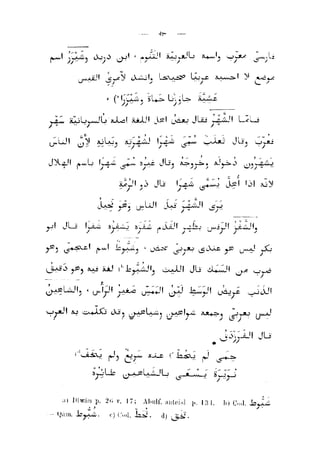 — ٩٣ —
فارسيّ معرب واسمه بالعربيّة القَيّوم • ابن دريد وشَيْزَرُ اسم
موضع لا احسبه عربيّا صحيحا وانشد لامرئ القيس
عَشِيَّةَ جاوَزْنا حَمَاةَ وشَيْزَرَا a) •
فامّا الشَهْرُ فقال بعض اهل اللغة اصله بالسريانيّة سَهْر
فعُرّب وقال ثعلب سُمِّيَ شَهْرا لشُهْرته وبَيانه لأنّ الناسَ
يَشْهَرون دُخولَه وخُروجَه وقال غيره سُمّى شَهْرا باسم الهِلال
لأنّه اذا أَهَلَّ يُسَمَّى شهرا قال ذو الرُمّة
يَرَى الشَهْرَ قَبْلَ الناسِ وهْوَ نَحِيلُ
والشَفْرُ الرَفْسُ بظَهْرِ القَدَمِ شَفَرَه يَشْفِرُه شَفْرا قال ابو
بكر ليس هو عندى بعربىّ محض • وشَبُّوط اسم اعجمىّ وهو
ضرب من السَمَك قال الليث والشَبُّوط b) لغة فيه وهو دَقيق
الذَنَب عَرِيض الوَسَط لَيِّن المَمَسّ صَغير الرَأْس • والشاهِين
ليس بعربىّ وجمعه شَواهين وشَياهين وقد تكلّمت به العرب
قال الفَرَزْدَق
حِمًى لَمْ يُحَطْ c) عنه سَرِيعٌ ولَمْ يَخَفْ d)
نُوَيْرَةَ يَسْعَى بالشَياهين طائِرُهْ
a) Diwân p. 26 v. 17; Abulf. anteisl p. 134. b) Cod. شَبُوط
— Qam. شَبُّوط. c) Cod. لحط. d) يحَفَ.